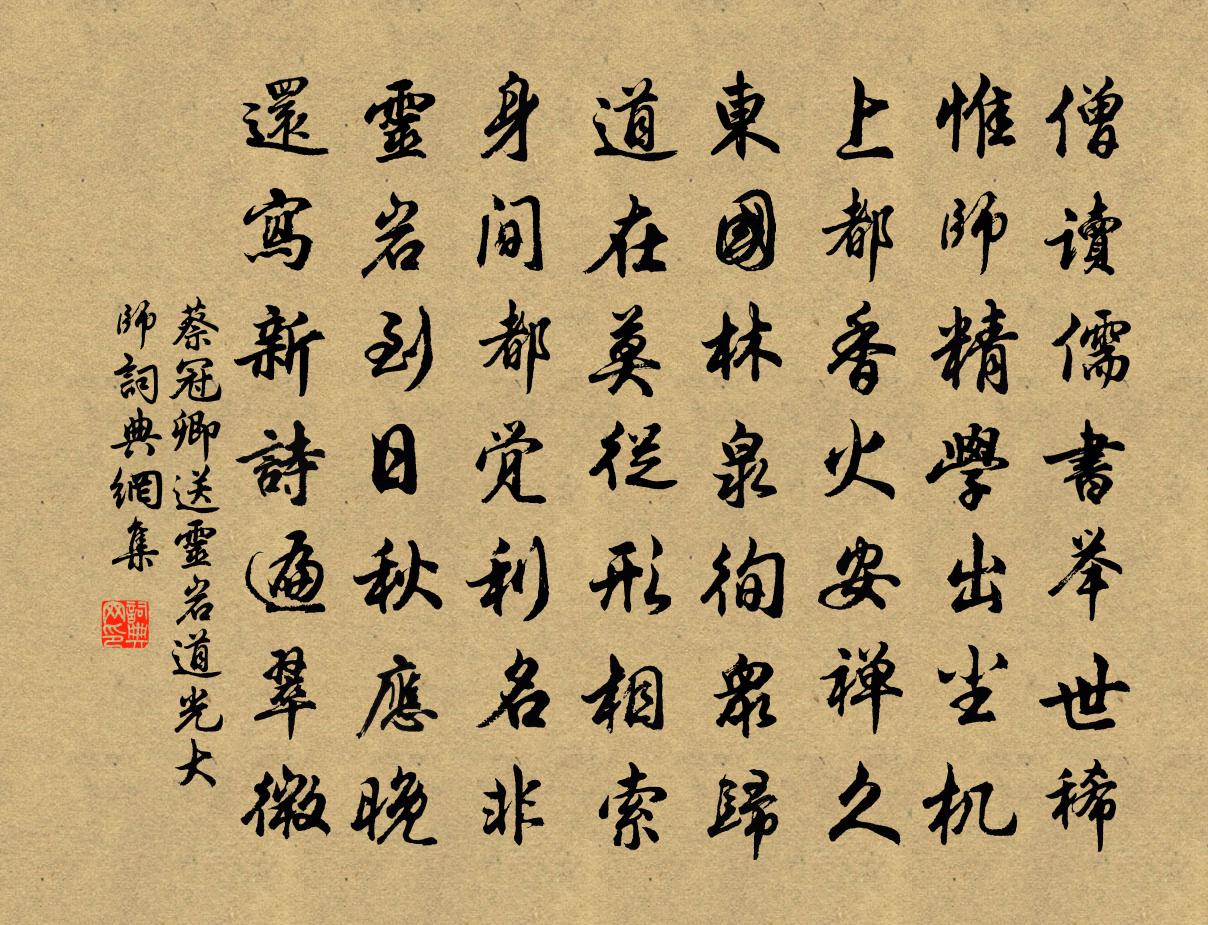 僧讀儒書举世稀
惟師精學出尘机
上都香火安禅久
東國林泉徇眾歸
道在莫從形相索
身间都觉利名非
靈岩到日秋應晚
還寫新詩遍翠微
蔡冠卿送靈岩道光大
師詞典網集
詞典
网印